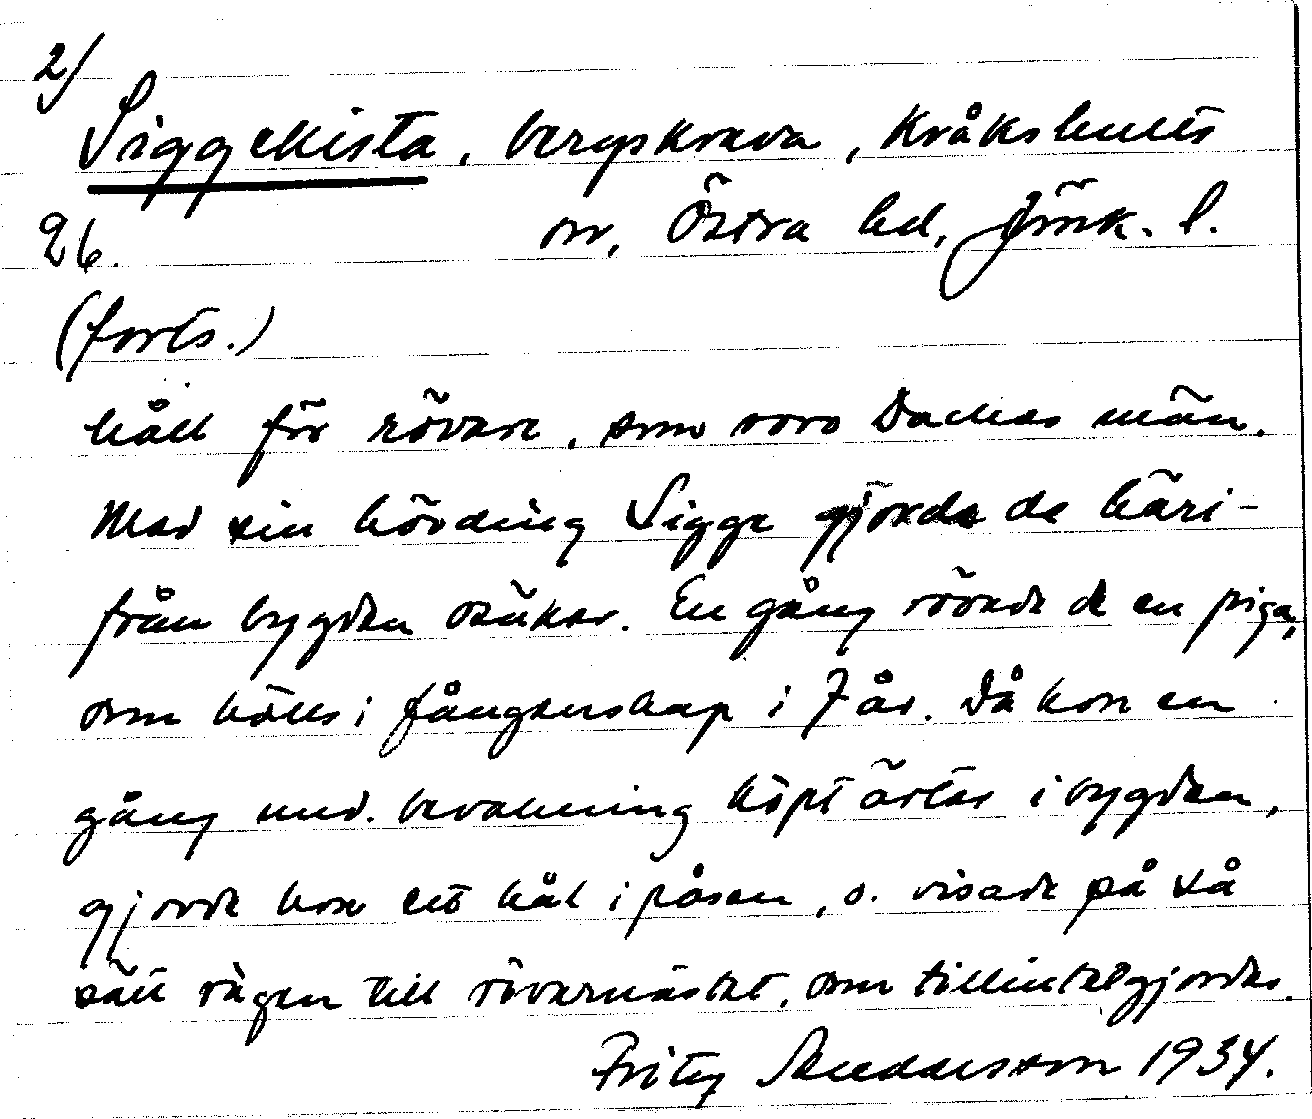 2/
Siggekista, bergskreva, Kråkshults
26. sn, Östra hd, Jönk. l.
(forts.)
håll för rövare, som voro Dackes män.
Med sin hövding Sigge gjorde de häri-
från bygden osäker. En gång rövade de en piga,
som hölls i fångenskap i 7 år. Då hon en
gång und. bevakning köpt ärter i bygden,
gjorde hon ett hål i påsen, o. visade på så
sätt vägen till rövarnästet, som tillintetgjordes.
Fritz 1934.